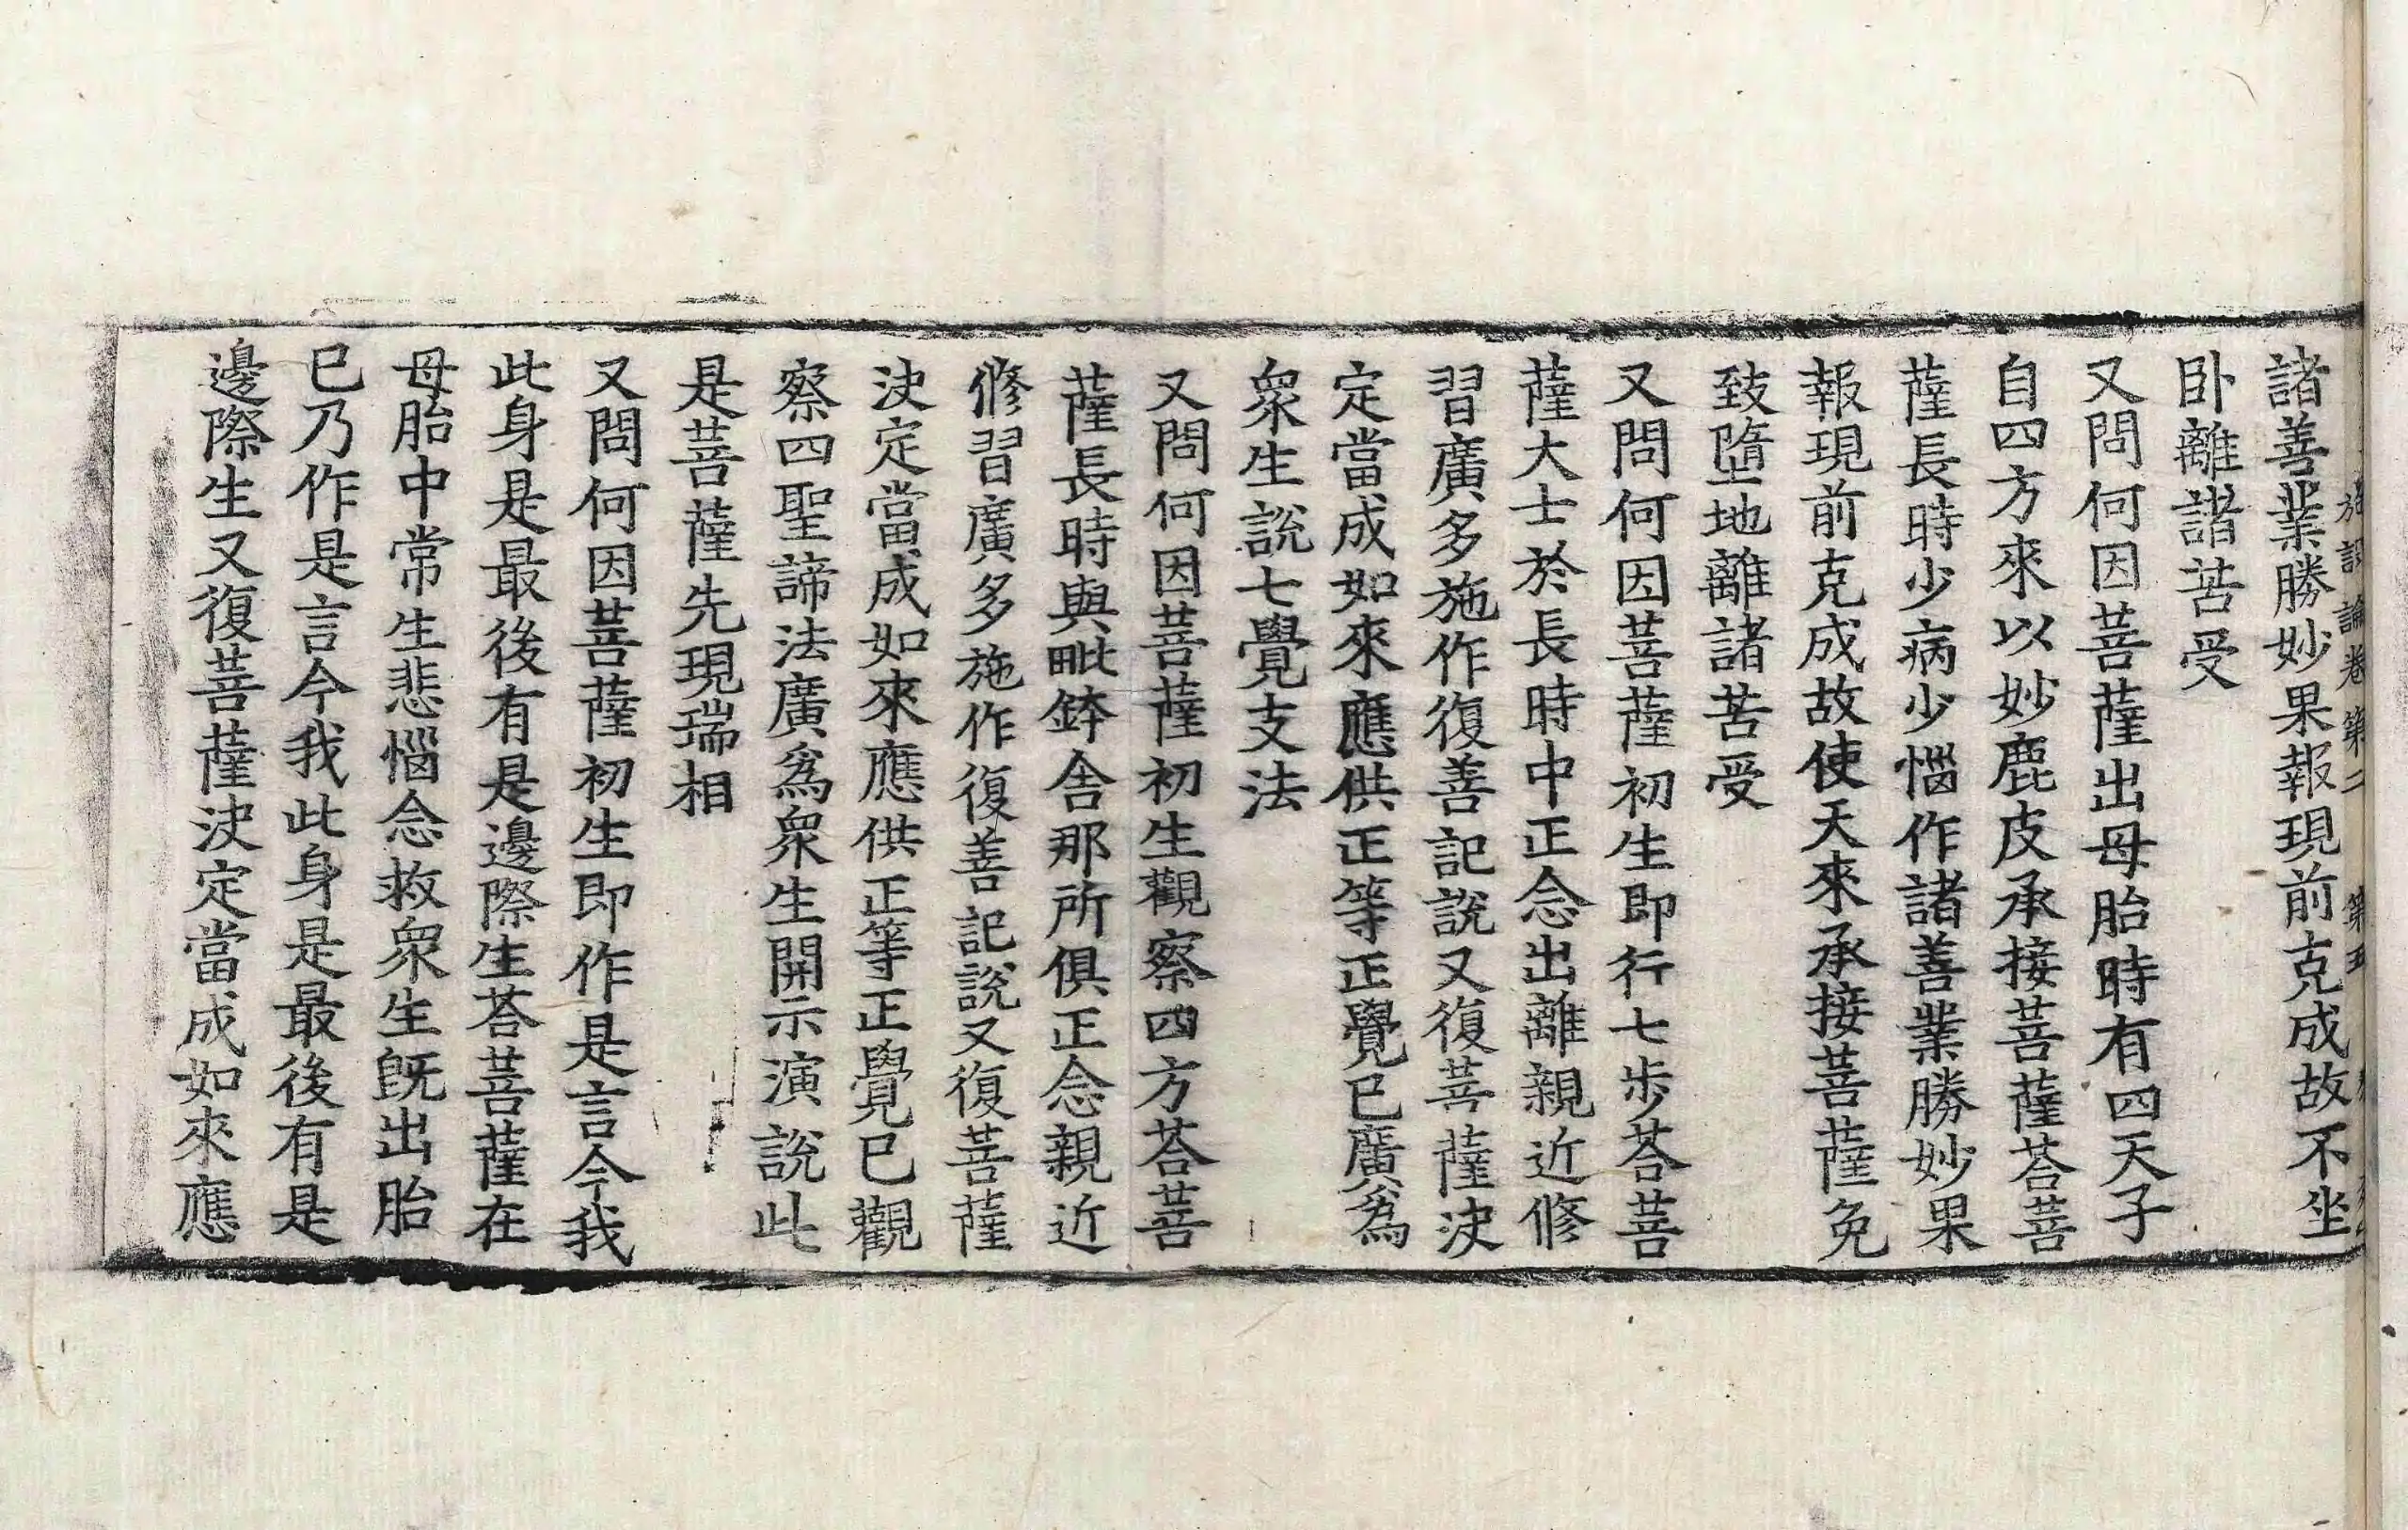 諸善業勝妙果報現前克成故不坐
施設論卷第二 第五
卧離諸苦受
又問何因菩薩出母胎時有四天子
自四方來以妙鹿皮承接菩薩荅菩
薩長時少病少惱作諸善業勝妙果
報現前克成故使天來承接菩薩免
致墮地離諸苦受
又問何因菩薩初生即行七步荅菩
薩大士於長時中正念出離親近修
習廣多施作復善記說又復菩薩决
定當成如來應供正等正覺已廣爲
衆生說七覺支法
又問何因菩薩初生觀察四方荅菩
薩長時與毗鉢舍那所俱正念親近
修習廣多施作復善記說又復菩薩
决定當成如來應供正等正覺已觀
察四聖諦法廣爲衆生開示演說此
是菩薩先現瑞相
又問何因菩薩初生即作是言今我
此身是最後有是邊際生荅菩薩在
母胎中常生悲惱念救衆生旣出胎
已乃作是言今我此身是最後有是
邊際生又復菩薩决定當成如來應